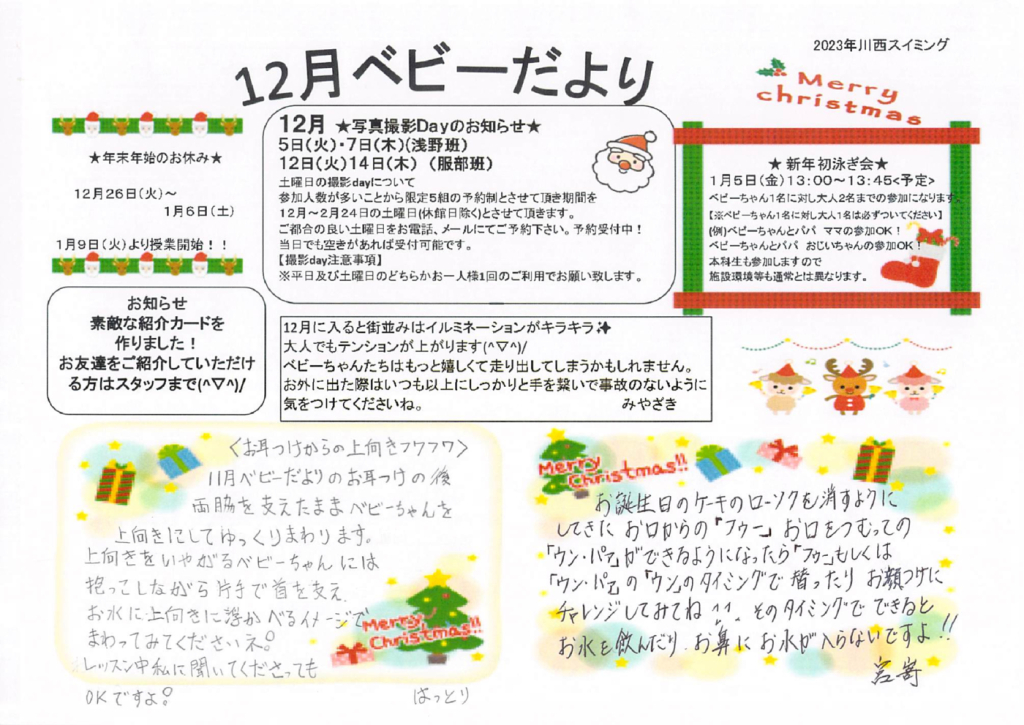 2023年川西スイミング
12月ベビーだより
Merry
christmas
★年末年始のお休み★
12月26日(火)～
1月6日(土)
1月9日(火)より授業開始！！
12月 ★写真撮影Dayのお知らせ★
5日(火)・7日(木)(浅野班)
12日(火)14日(木) (服部班)
土曜日の撮影dayについて
参加人数が多いことから限定5組の予約制とさせて頂き期間を
12月～2月24日の土曜日(休館日除く)とさせて頂きます。
ご都合の良い土曜日をお電話、メールにてご予約下さい。予約受付中！
当日でも空きがあれば受付可能です。
【撮影day注意事項】
※平日及び土曜日のどちらかお一人様1回のご利用でお願い致します。
★ 新年初泳ぎ会★
1月5日(金)13:00～13:45<予定>
ベビーちゃん1名に対し大人2名までの参加になります。
【※ベビーちゃん1名に対し大人1名は必ずついてください】
(例)ベビーちゃんとパパ ママの参加OK！
ベビーちゃんとパパ おじいちゃんの参加OK！
本科生も参加しますので
施設環境等も通常とは異なります。
お知らせ
素敵な紹介カードを
作りました！
お友達をご紹介していただけ
る方はスタッフまで(^▽^)/
12月に入ると街並みはイルミネーションがキラキラ✨
大人でもテンションが上がります(^▽^)/
ベビーちゃんたちはもっと嬉しくて走り出してしまうかもしれません。
お外に出た際はいつも以上にしっかりと手を繋いで事故のないように
気をつけてくださいね。 みやざき
〈お耳つけからの上向きフワフワ〉
11月ベビーだよりのお耳つけの後
両脇を支えたままベビーちゃんを
上向きにしてゆっくりまわります。
上向きをいやがるベビーちゃんには
抱っこしながら片手で首を支え
お水に上向きに浮かべるイメージで
まわってみてくださいネ!
レッスン中私に聞いてくださっても
OKですよ!
はっとり
Merry
Christmas!!
Merry
Christmas!!
お誕生日のケーキのローソクを消すように
してきた お口からの「フゥー」お口をつむっての
「ウン・パァ」ができるようになったら「フゥー」もしくは
「ウン・パァ」の「ウン」のタイミングで 潜ったり お顔つけに
チャレンジしてみてね^^ そのタイミングで できると
お水を飲んだり お鼻に お水が入らないですよ!!
宮嵜